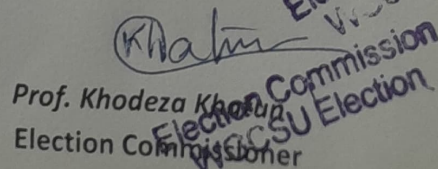 Khatun
Prof. Khodeza Khatun
Election Commissioner
Election Commission
SU Election